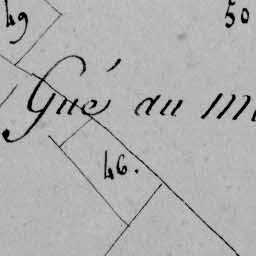 49
50
Gué au m
46.